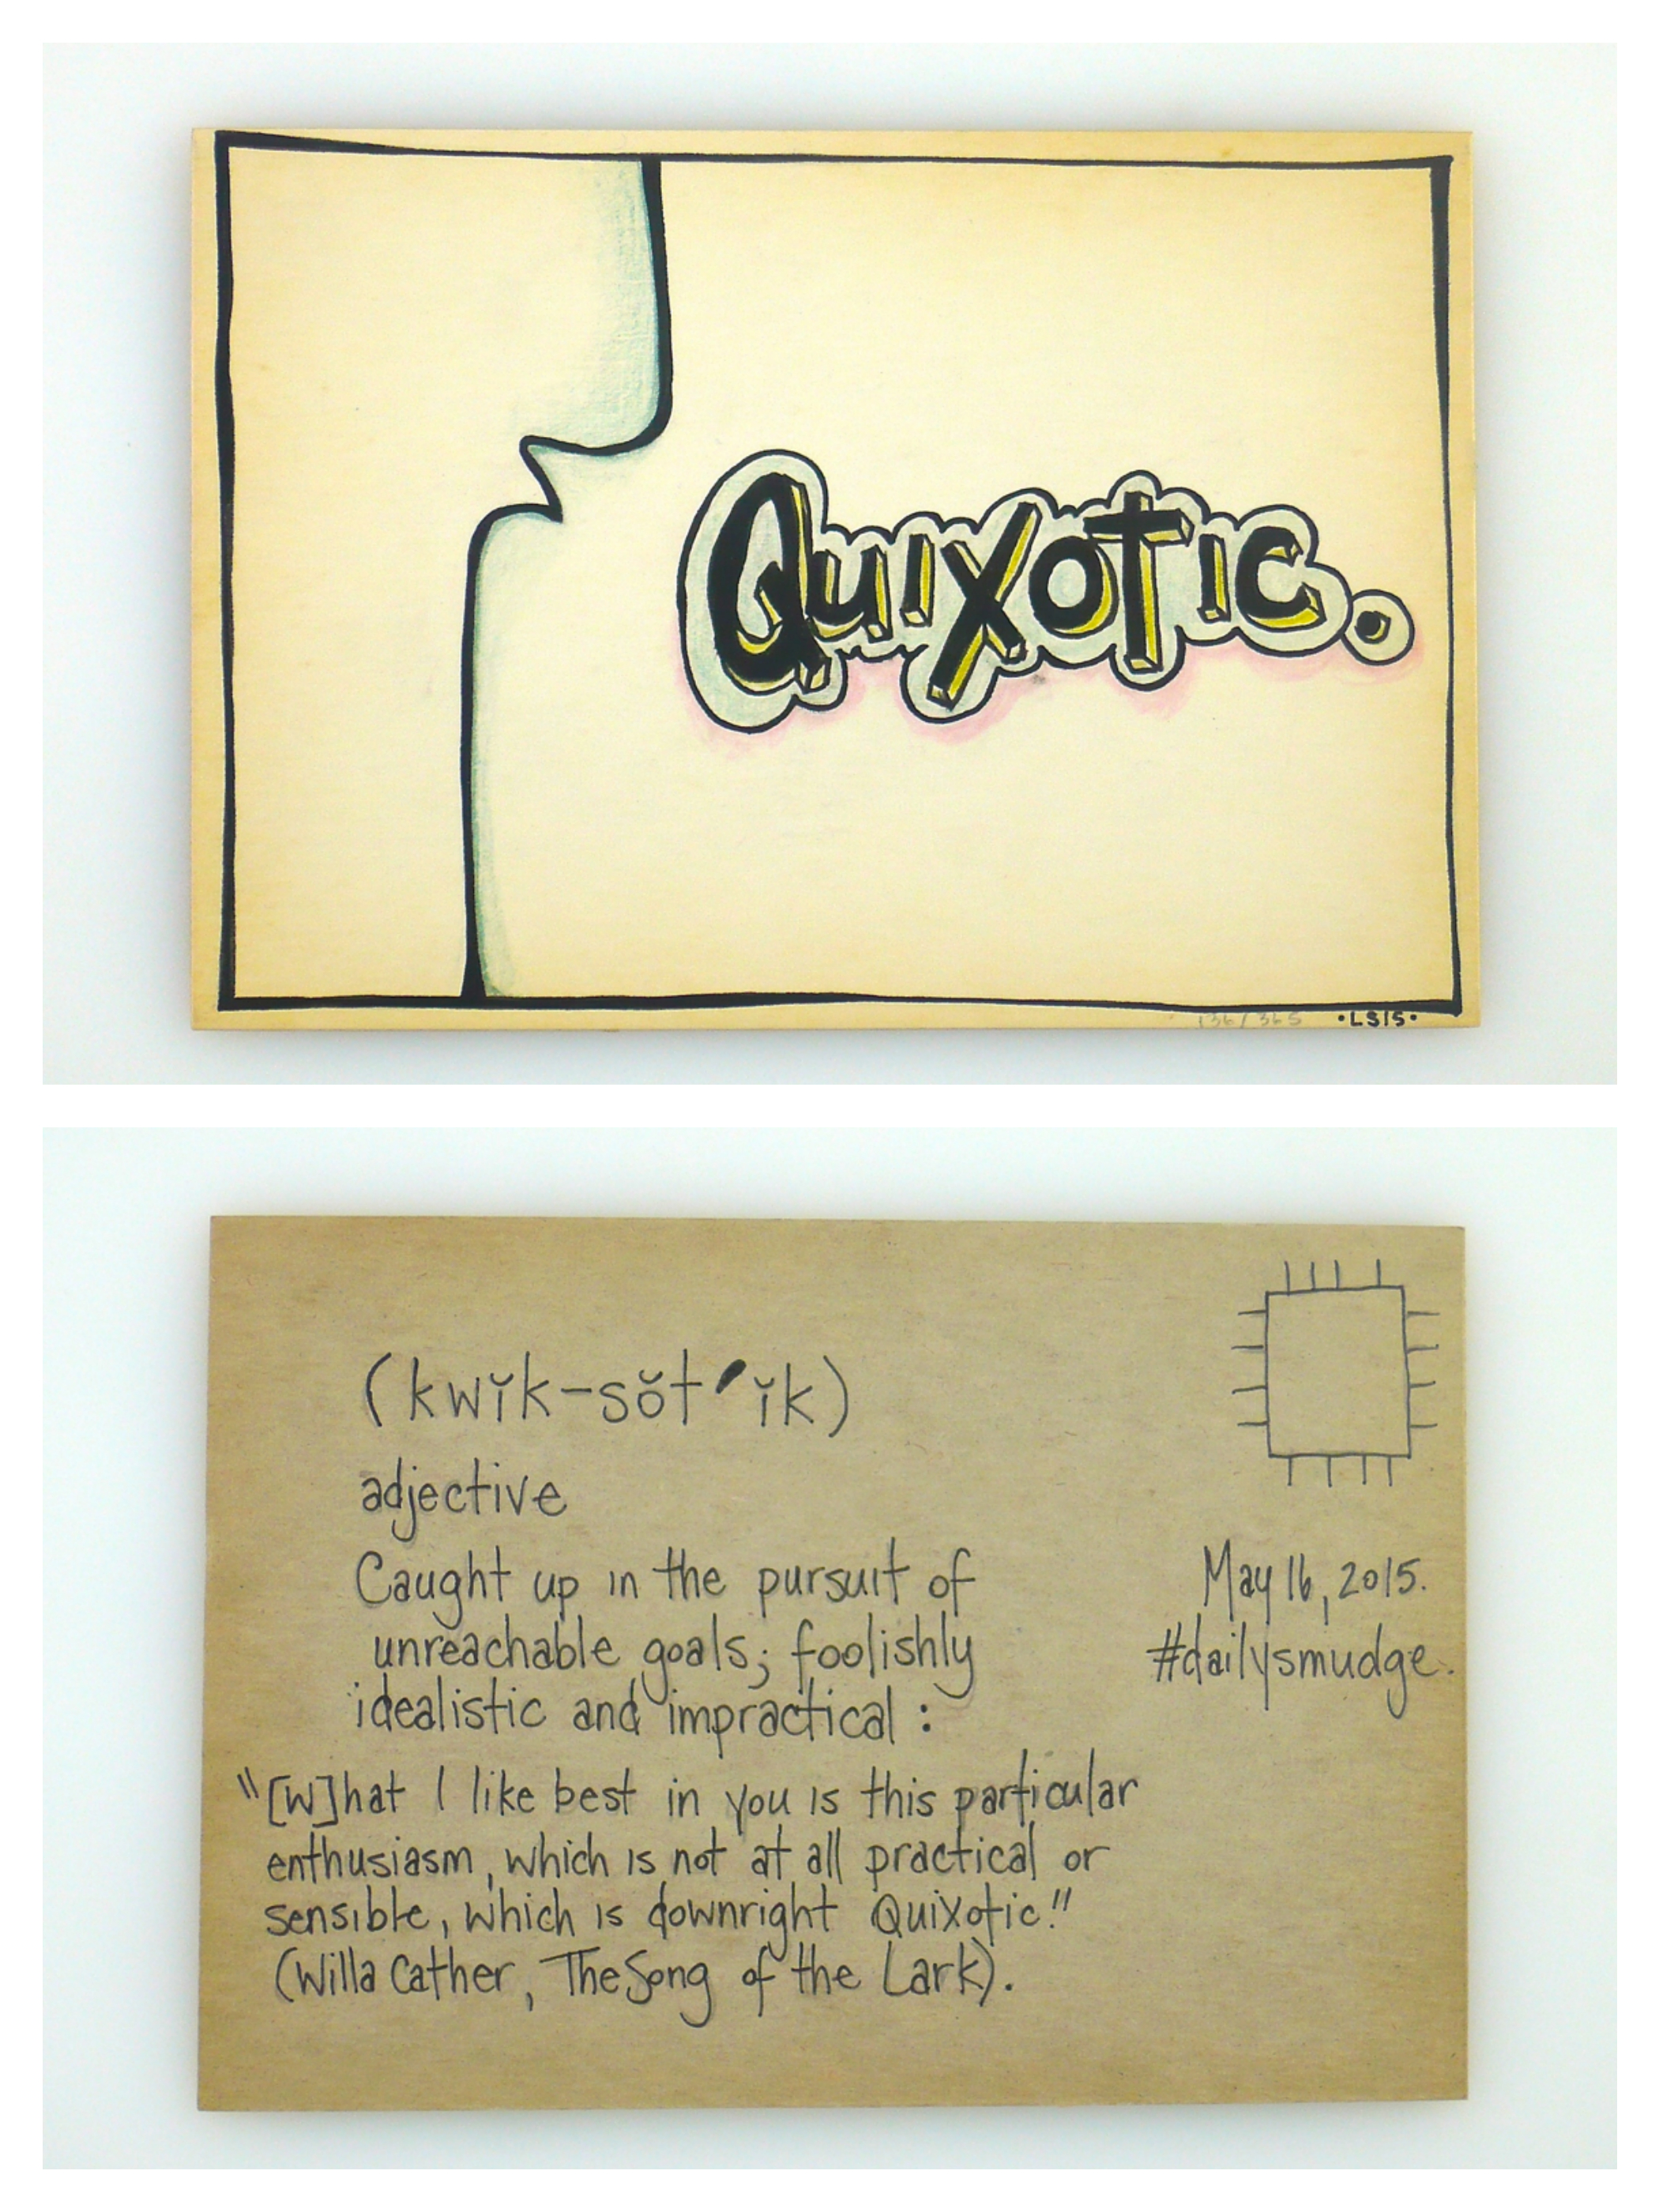 Quixotic.
136/365 •LS15•
(kwĭk-sŏt′ĭk)
adjective
Caught up in the pursuit of
unreachable goals; foolishly
idealistic and impractical :
"[W]hat I like best in you is this particular
enthusiasm, which is not at all practical or
sensible, which is downright Quixotic."
(Willa Cather, The Song of the Lark).
May 16, 2015.
#dailysmudge.